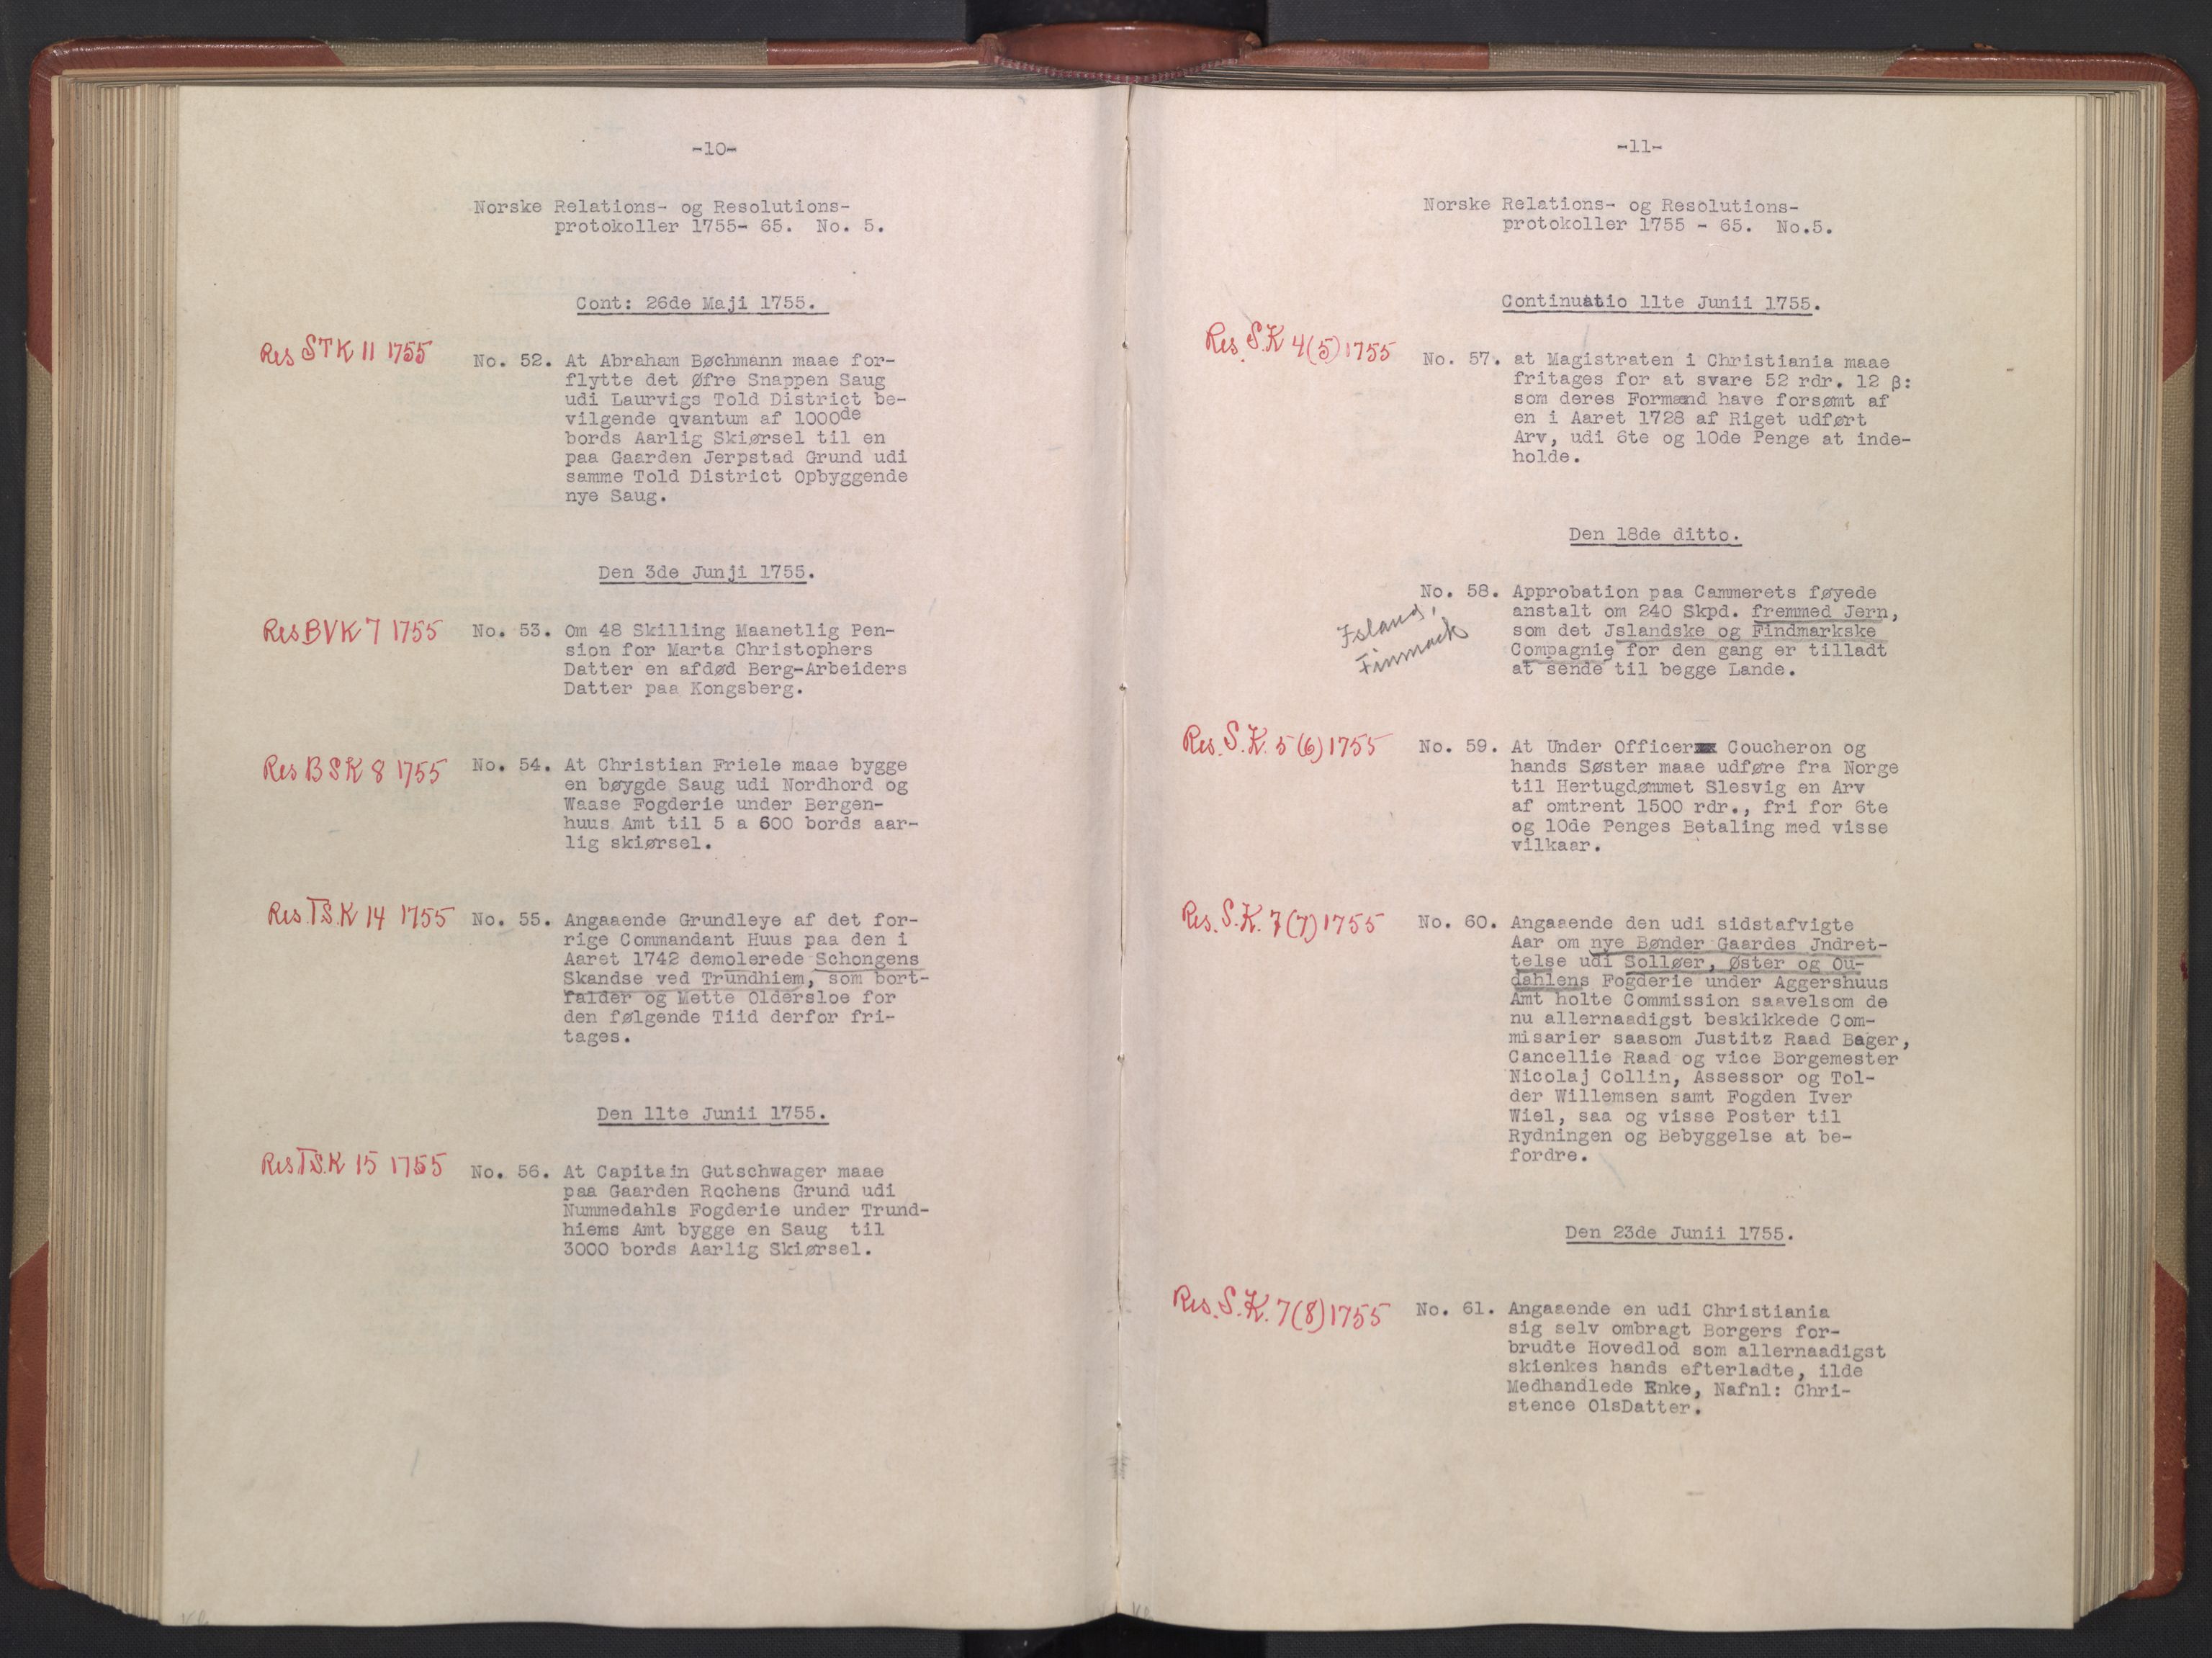 -10-
Norske Relations- og Resolutions-
protokoller 1755- 65. No. 5.
Cont: 26de Maji 1755.
Res STK 11 1755
No. 52. At Abraham Bøchmann maae for-
flytte det Øfre Snappen Saug
udi Laurvigs Told District be-
vilgende qvantum af 1000de
bords Aarlig Skiørsel til en
paa Gaarden Jerpstad Grund udi
samme Told District Opbyggende
nye Saug.
Den 3de Junji 1755.
Res BVK 7 1755
No. 53. Om 48 Skilling Maanetlig Pen-
sion for Marta Christophers
Datter en afdød Berg-Arbeiders
Datter paa Kongsberg.
Res BSK 8 1755
No. 54. At Christian Friele maae bygge
en bøygde Saug udi Nordhord og
Waase Fogderie under Bergen-
huus Amt til 5 a 600 bords aar-
lig skiørsel.
Res. TS.K 14 1755
No. 55. Angaaende Grundleye af det for-
rige Commandant Huus paa den i
Aaret 1742 demolerede Schongens
Skandse ved Trundhiem, som bort-
falder og Mette Oldersloe for
den følgende Tiid derfor fri-
tages.
Den 11te Junii 1755.
Res TS.K 15 1755
No. 56. At Capitain Gutschwager maae
paa Gaarden Rochens Grund udi
Nummedahls Fogderie under Trund-
hiems Amt bygge en Saug til
3000 bords Aarlig Skiørsel.
-11-
Norske Relations- og Resolutions-
protokoller 1755 - 65. No.5.
Continuatio 11te Junii 1755.
Res. S.K 4(5) 1755
No. 57. at Magistraten i Christiania maae
fritages for at svare 52 rdr. 12 β:
som deres Formænd have forsømt af
en i Aaret 1728 af Riget udført
Arv, udi 6te og 10de Penge at inde-
holde.
Den 18de ditto.
No. 58. Approbation paa Cammerets føyede
anstalt om 240 Skpd. fremmed Jern,
som det Jslandske og Findmarkske
Compagnie for den gang er tilladt
at sende til begge Lande.
Island,
Finmark
Res. S.K. 5 (6) 1755
No. 59. At Under Officer Coucheron og
hands Søster maae udføre fra Norge
til Hertugdømmet Slesvig en Arv
af omtrent 1500 rdr., fri for 6te
og 10de Penges Betaling med visse
vilkaar.
Res. S.K. 7 (7) 1755
No. 60. Angaaende den udi sidstafvigte
Aar om nye Bønder Gaardes Jndret-
telse udi Solløer, Øster og Ou-
dahlens Fogderie under Aggershuus
Amt holte Commission saavelsom de
nu allernaadigst beskikkede Com-
misarier saasom Justitz Raad Bager,
Cancellie Raad og vice Borgemester
Nicolaj Collin, Assessor og Tol-
der Willemsen samt Fogden Iver
Wiel, saa og visse Poster til
Rydningen og Bebyggelse at be-
fordre.
Den 23de Junii 1755.
Res. S.K. 7(8) 1755
No. 61. Angaaende en udi Christiania
sig selv ombragt Borgers for-
brudte Hovedlod som allernaadigst
skienkes hands efterladte, ilde
Medhandlede Enke, Nafnl: Chri-
stence OlsDatter.